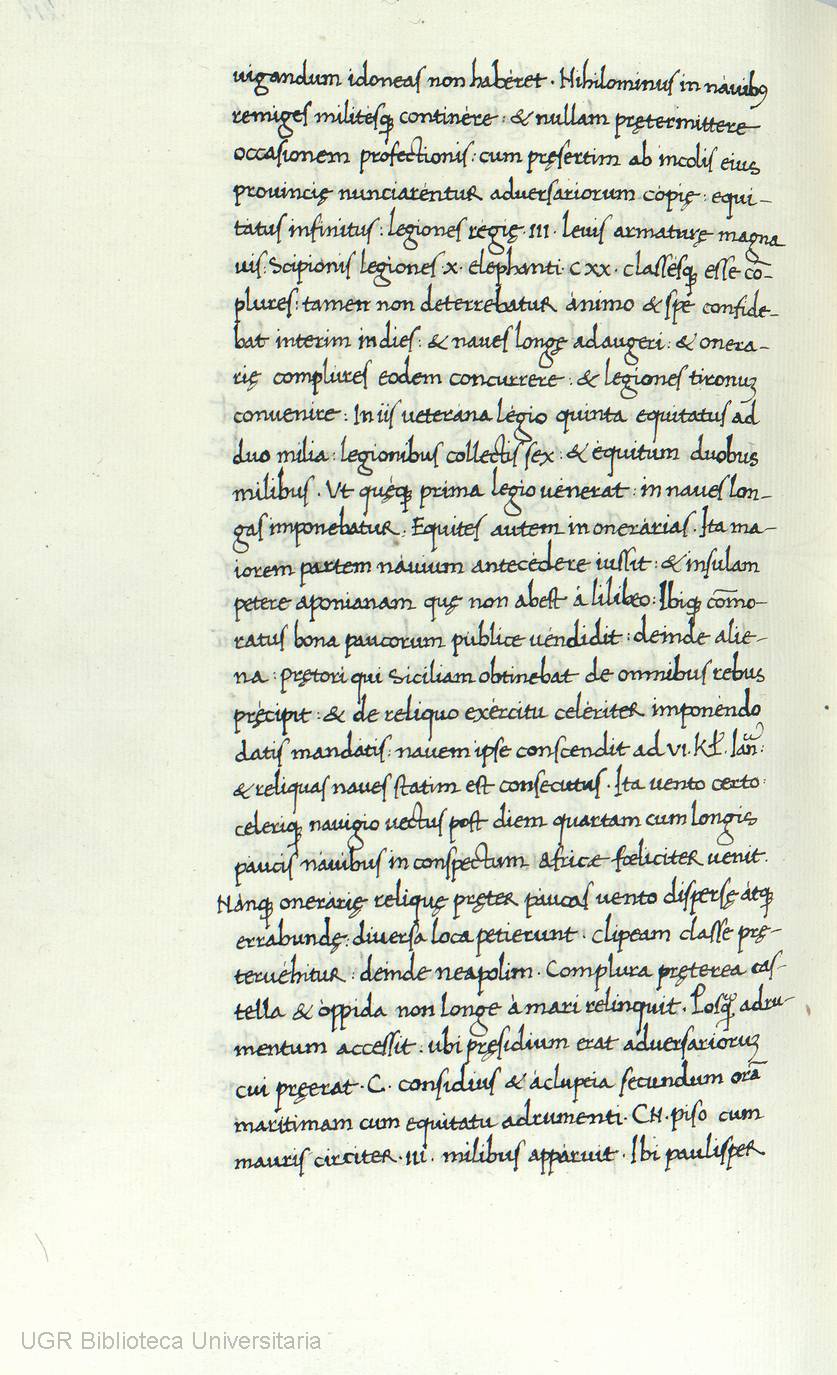 uigandum idoneas non habéret · Nihilominus in nauibꝯ
remiges militésqꝫ continére : & nullam prętermittere
occasionem profectionis : cum pręsertim ab incolis eius
prouincię nunciaréntur aduersariorum copię : equi-
tatus infinitus : legiones régię · III · leuis armaturę magna
uis : Scipionis legiones · X · elephanti · C XX · classésqꝫ esse cō-
plures : tamen non deterrebatur ánimo & spé confide-
bat interim in dies : & naues longę adaugeri : & onera-
rię complures eodem concurrere : & legiones tironuꝫ
conuenire : In iis ueterána légio quinta equitatus ad
duo milia : legionibus collectis sex : & équitum duobus
milibus · Vt quęqꝫ prima legio uénerat : in naues lon-
gas imponebatur : Equites autem in onerárias · Ita ma-
iorem partem náuium antecédere iussit : & insulam
petere aponianam quę non abest á lilibęo : Ibiqꝫ cōmo-
ratus bona paucorum publice uéndidit : deinde alie-
na : prętori qui Siciliam obtinebat de omnibus rebus
pręcipit : & de reliquo exércitu celériter imponéndo
datis mandatis : nauem ipse conscendit ad VI · Kł. Ian̄ :
& reliquas naues statim est consecutus · Ita uento certo ·
celeriqꝫ nauigio uectus post diem quartam cum longis
paucis náuibus in conspectum africæ fœliciter uenit.
Nánqꝫ onerárię reliquę pręter páucas uento disperse átqꝫ
errabundę : diuérsa loca petierunt · clipeam classe prę-
teruéhitur : deinde neapolim · Complura pręterea cas-
tella & óppida non longe á mari relinquit · Posq̃ꝫ adru-
mentum accessit : ubi pręsidium erat aduersarioruꝫ
cui pręerat · C · considius & áclupeia secundum orā
marítimam cum equitatu adrumenti · CN · piso cum
mauris circiter · III · milibus appáruit · Ibi paulisper
UGR Biblioteca Universitaria